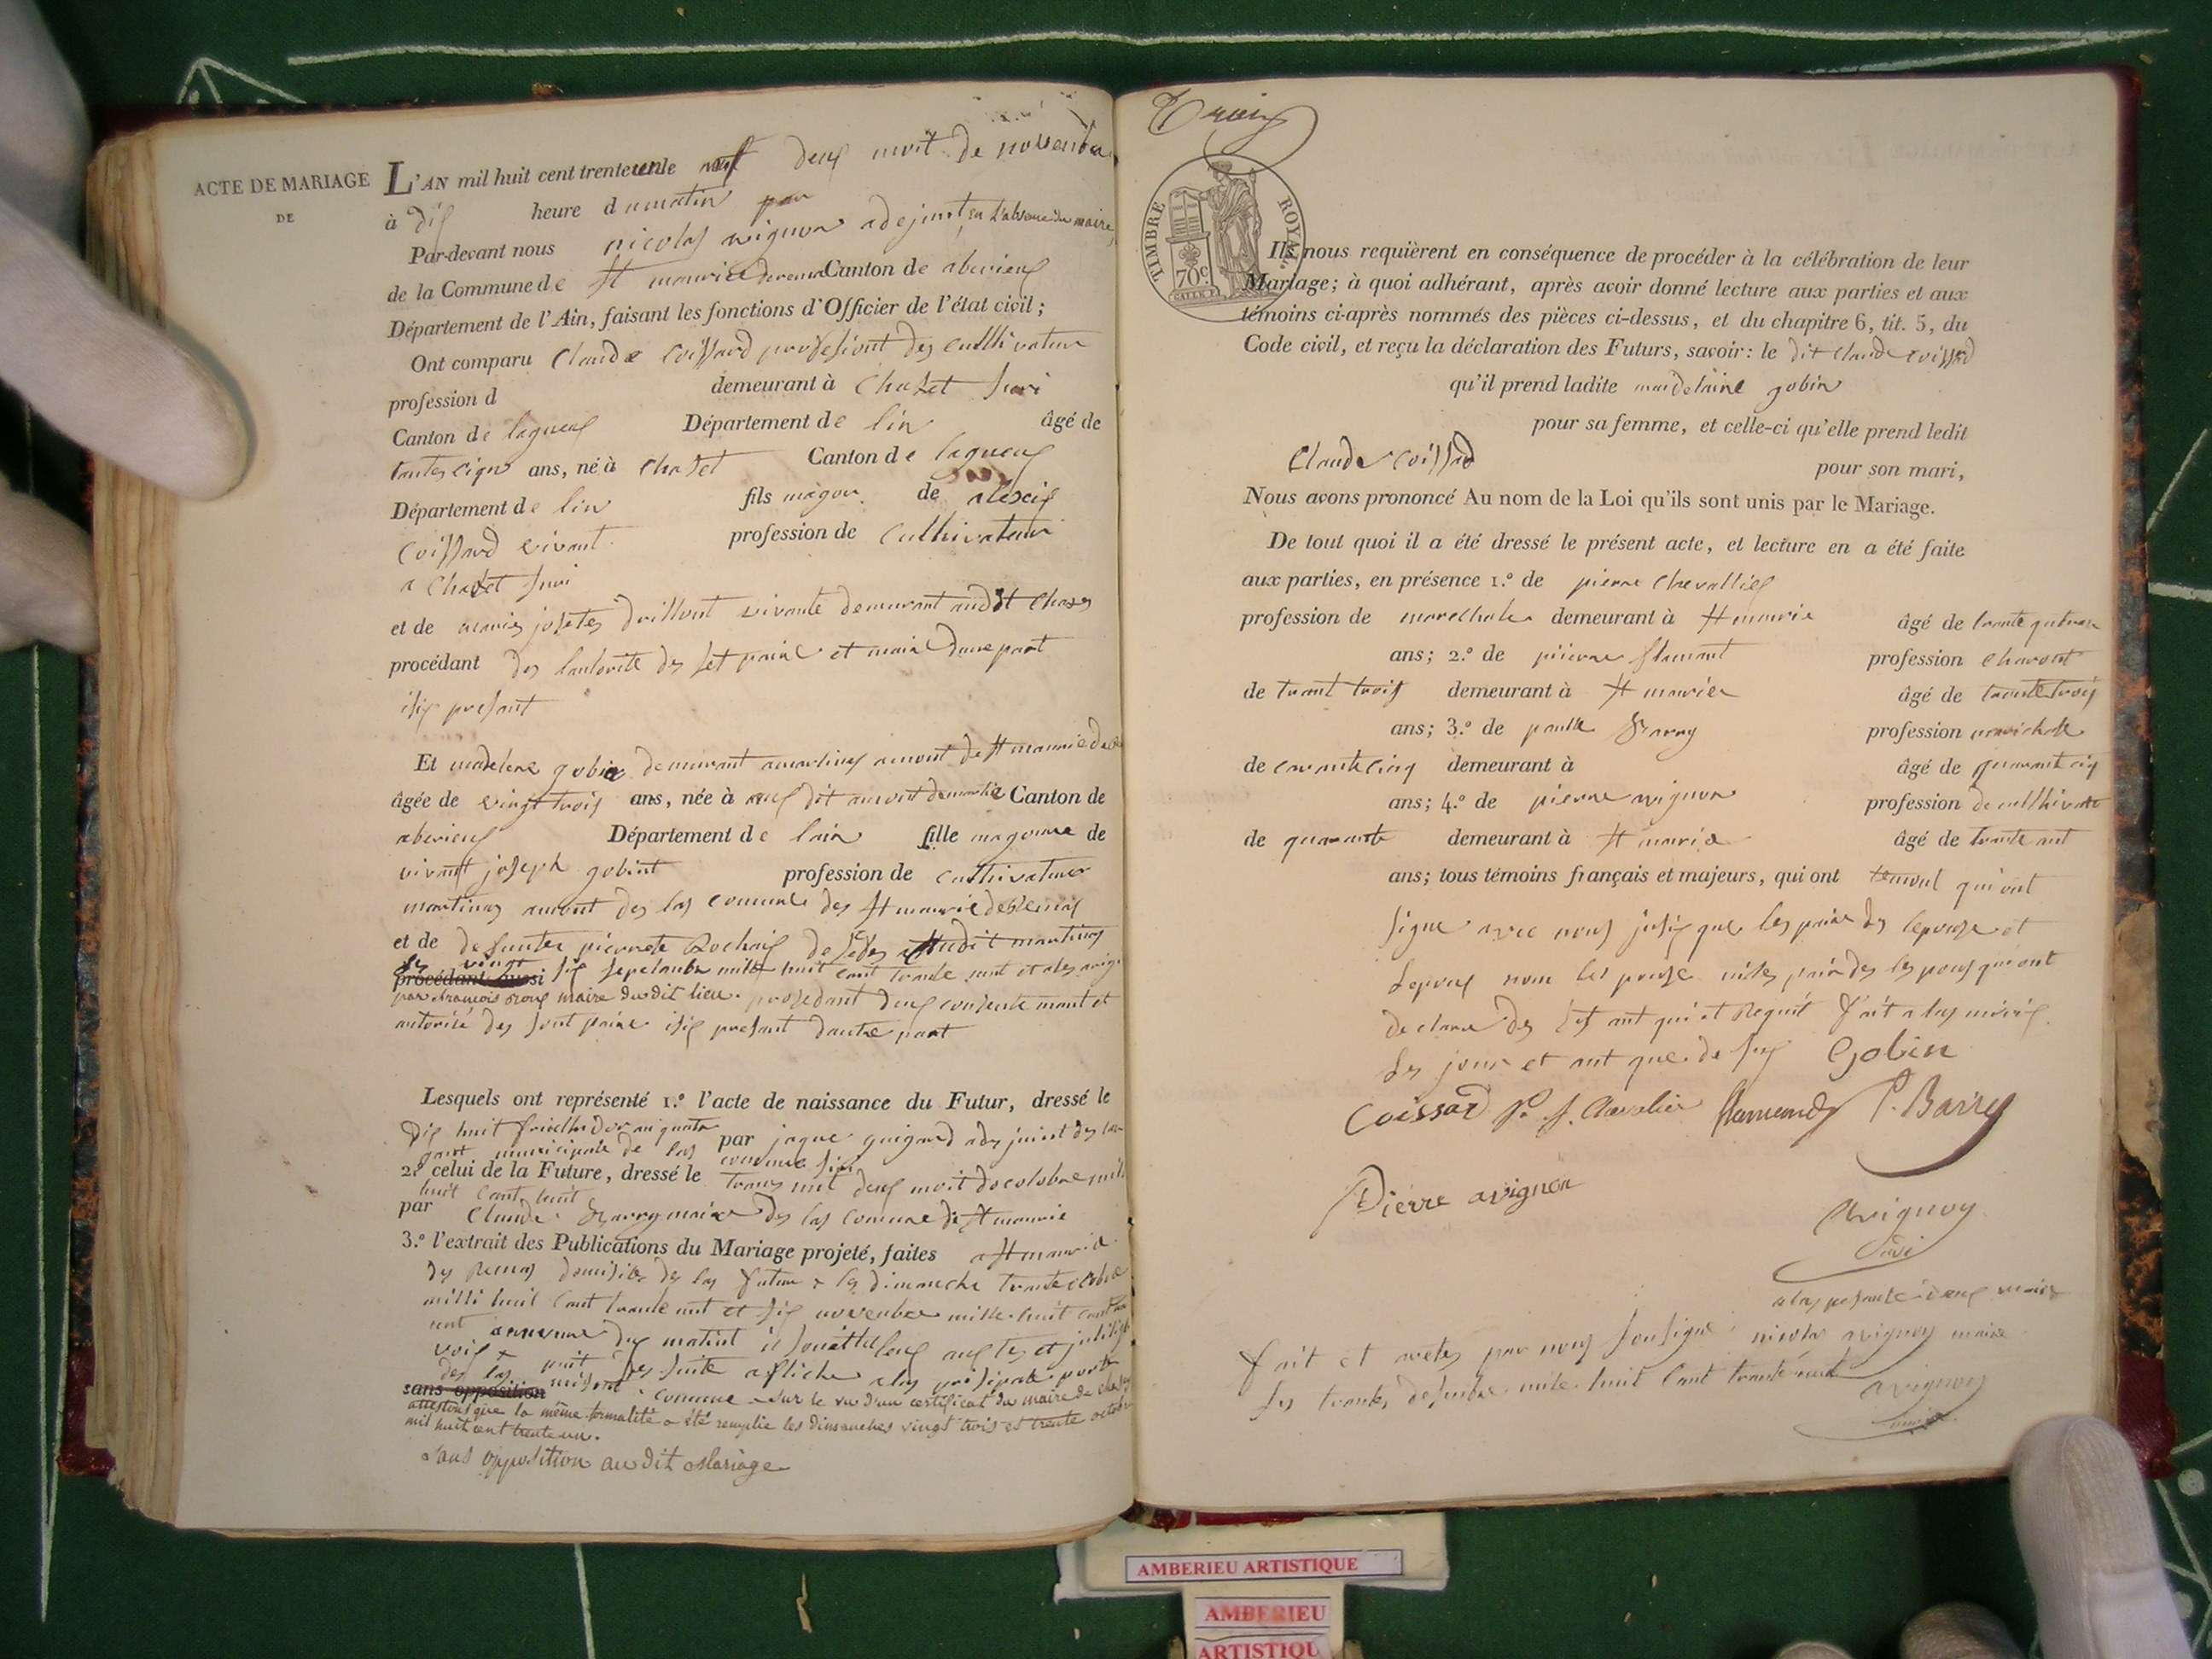 ACTE DE MARIAGE
DE
L'AN mil huit cent trente un le neuf deux moit de novembre
à dix heure du matin par
Par-devant nous nicolas avignon adejoint, en l'absence du maire,
de la Commune de St mourice deremas Canton de aberieux
Département de l'Ain, faisant les fonctions d'Officier de l'état civil;
Ont comparu Claude Coissard profesiont des culltivateur
profession d demeurant à Chaset suri
Canton de lagneux Département de lin âgé de
trantes cinq ans, né à Chaset Canton de lagneux
Département de lin fils magon de alexis
Coissard vivant profession de Culltivateur
a Chaset suri
et de marie josetes drillont vivante demeurant audit Chases
procédant des lautorite des set paire et maire dune part
isis presant
Et madelene gobin demeurant amartinas amont de St maurie de
âgée de vingt trois ans, née à audit amont demartia Canton de
aberieux Département de lain fille magoure de
vivant joseph gobint profession de Culltivateur
martinas amont des las comune des St maurie de Remas
et de defunte piernete Rochaix desedes audit martinas
le vingt
procédant aussi six septambre mille huit cant trante unt
par françois Roux maire du dit lieu. prosedant deux consentemant et
autorisé des sont paire isis presant dautre part
Lesquels ont représenté 1.º l'acte de naissance du Futur, dressé le
dix huit par jaque guigard adejoint des
gant municipale de las commune
2.º celui de la Future, dressé le trans unt deux moit docctobre mill
huit Cant huit
par Claude Barry maire des las comune de St maurie
3.º l'extrait des Publications du Mariage projeté, faites a St mauris
des Remas domisile des las future les dimanche trante octobre
mille huit Cant trante unt et six novenbre mille huit cant
unt
des las comune
sans opposition - sur le vu d'un certificat du maire de chazey
attestons que la même formalité a été remplie les dimanches vingt trois et trente octobre
mil huit cent trente un.
Sans opposition au dit Mariage
TIMBRE ROYAL
70c
Ils nous requièrent en conséquence de procéder à la célébration de leur
Mariage; à quoi adhérant, après avoir donné lecture aux parties et aux
témoins ci-après nommés des pièces ci-dessus, et du chapitre 6, tit. 5, du
Code civil, et reçu la déclaration des Futurs, savoir: le dit Claude Coissard
qu'il prend ladite maidelaine gobin
pour sa femme, et celle-ci qu'elle prend ledit
Claude Coissard pour son mari,
Nous avons prononcé Au nom de la Loi qu'ils sont unis par le Mariage.
De tout quoi il a été dressé le présent acte, et lecture en a été faite
aux parties, en présence 1.º de pierre Chevallier
profession de marechale demeurant à St mourie âgé de trante quatre
ans; 2.º de pierre flamant profession Charont
de trant trois demeurant à St mourier âgé de trante trois
ans; 3.º de paulle Barry profession marichale
de carantecinq demeurant à âgé de quarant cinq
ans; 4.º de pierre avignon profession de culltivate
de quarante demeurant à St mauria âgé de trante ant
ans; tous témoins français et majeurs, qui ont temont qui ont
signe avec nous les paire des lepouse et
Lepoux nom les pouse paire des les poux qui ont
declare des qui et Requit Fait a las mairie
Les jour et ant que de sus Gobin
Coissard P. J. Chevalier flamand P. Barry
Pierre avignon
Avignon
adj
Fait et aretes par nous sousigne nicolas avignon maire
Les trantes desenbre mile huit Cant trante
avignon
maire
AMBERIEU ARTISTIQUE
AMBERIEU
ARTISTIQU